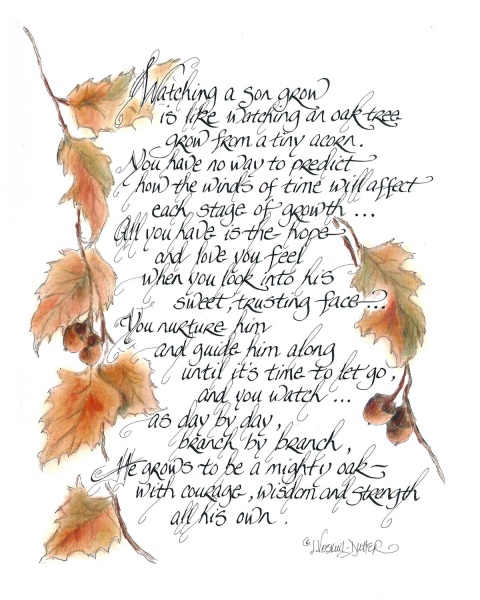 Watching a son grow
is like watching an oak tree
grow from a tiny acorn.
You have no way to predict
how the winds of time will affect
each stage of growth...
All you have is the hope
and love you feel
when you look into his
sweet, trusting face...
You nurture him
and guide him along
until it's time to let go,
and you watch...
as day by day,
branch by branch,
He grows to be a mighty oak-
with courage, wisdom and strength
all his own.
©